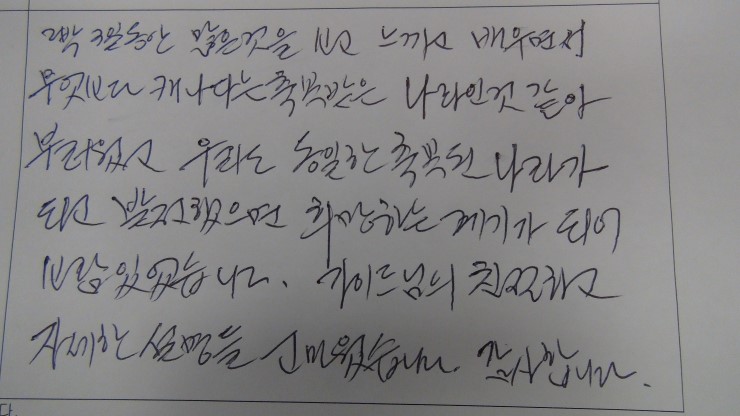 2박 3일동안 많은것을 보고 느끼고 배우면서
무엇보다 캐나다는 축복받은 나라인것 같아
부러웠고 우리도 동일한 축복된 나라가
되고 발전했으면 희망하는 계기가 되어
보람있었습니다. 가이드님의 친절하고
자세한 설명들 고마웠습니다. 감사합니다.
다.